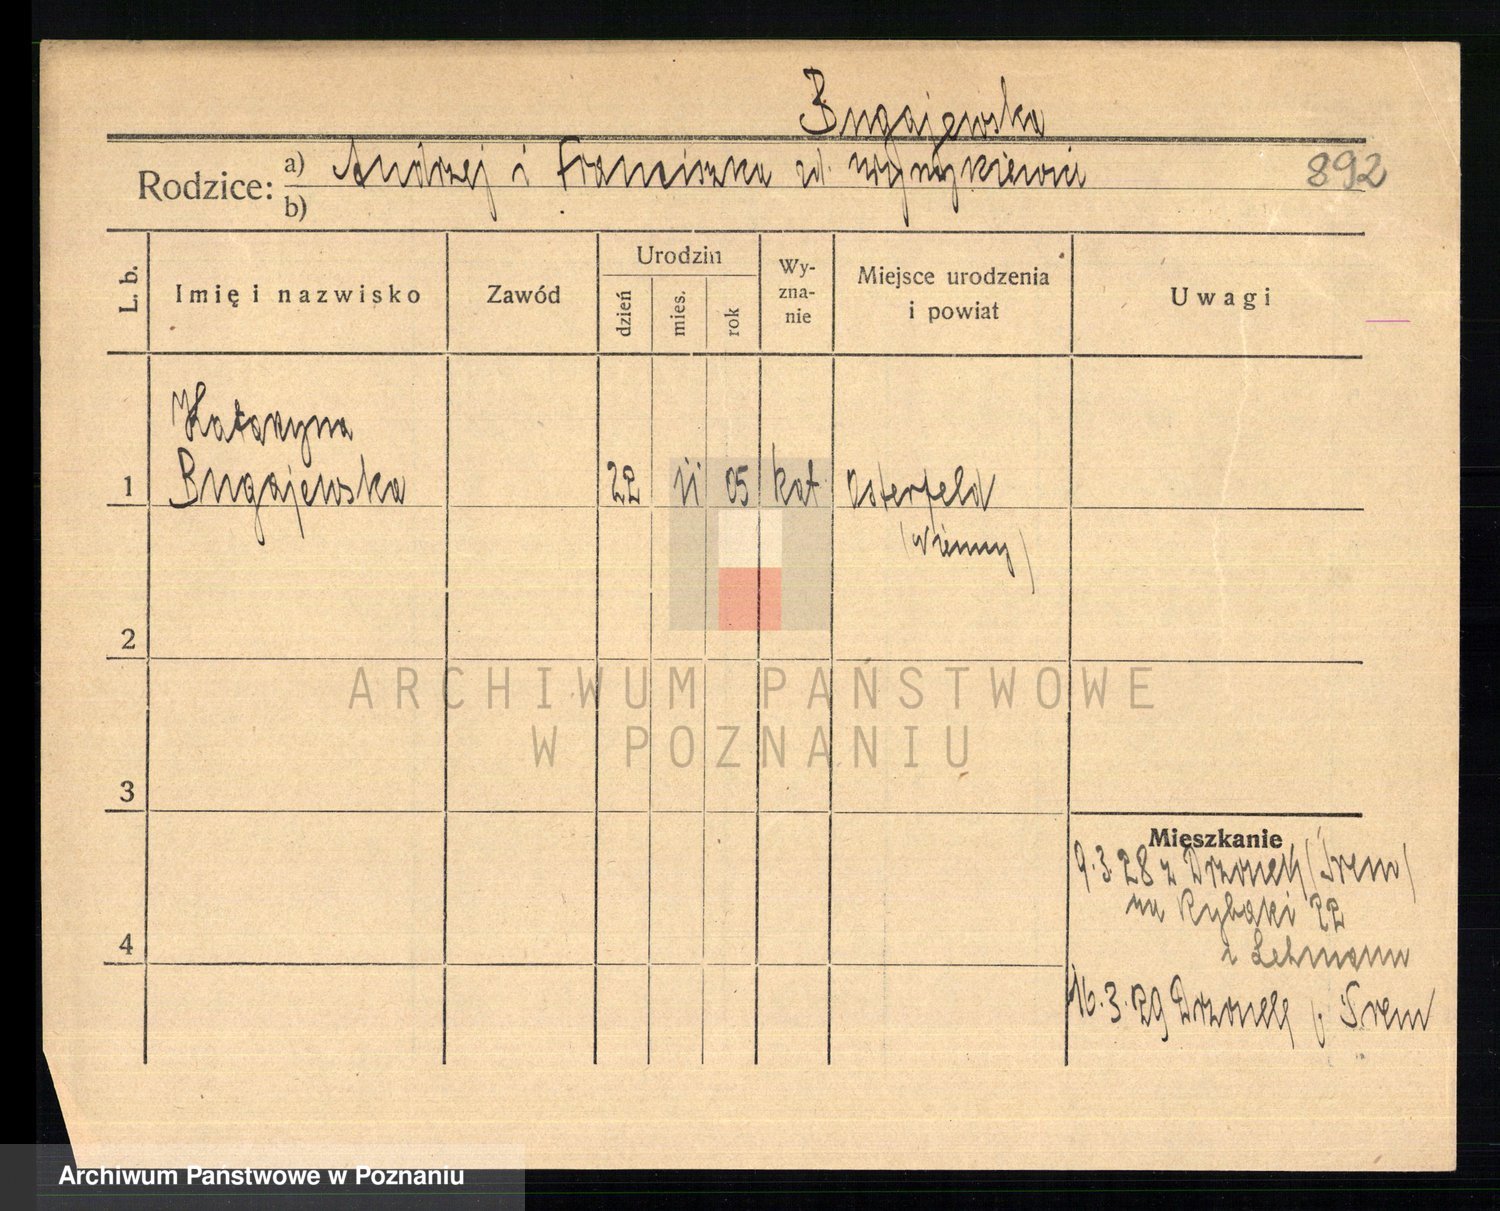 Bugajewska
Rodzice: a) Andrzej i Franciszka zd.
b)
892
L. b.
Imię i nazwisko
Zawód
Urodzin
dzień
mies.
rok
Wy-
zna-
nie
Miejsce urodzenia
i powiat
Uwagi
Katarzyna
1 Bugajewska 22 11 05 kat Osterfeld
(Niemcy)
2
3
4
Mieszkanie
9.3.28 z Drzonek (Śrem)
na Rybaki 22
Lehmann
16.3.29 Drzonek Śrem
ARCHIWUM PAŃSTWOWE
W POZNANIU
Archiwum Państwowe w Poznaniu